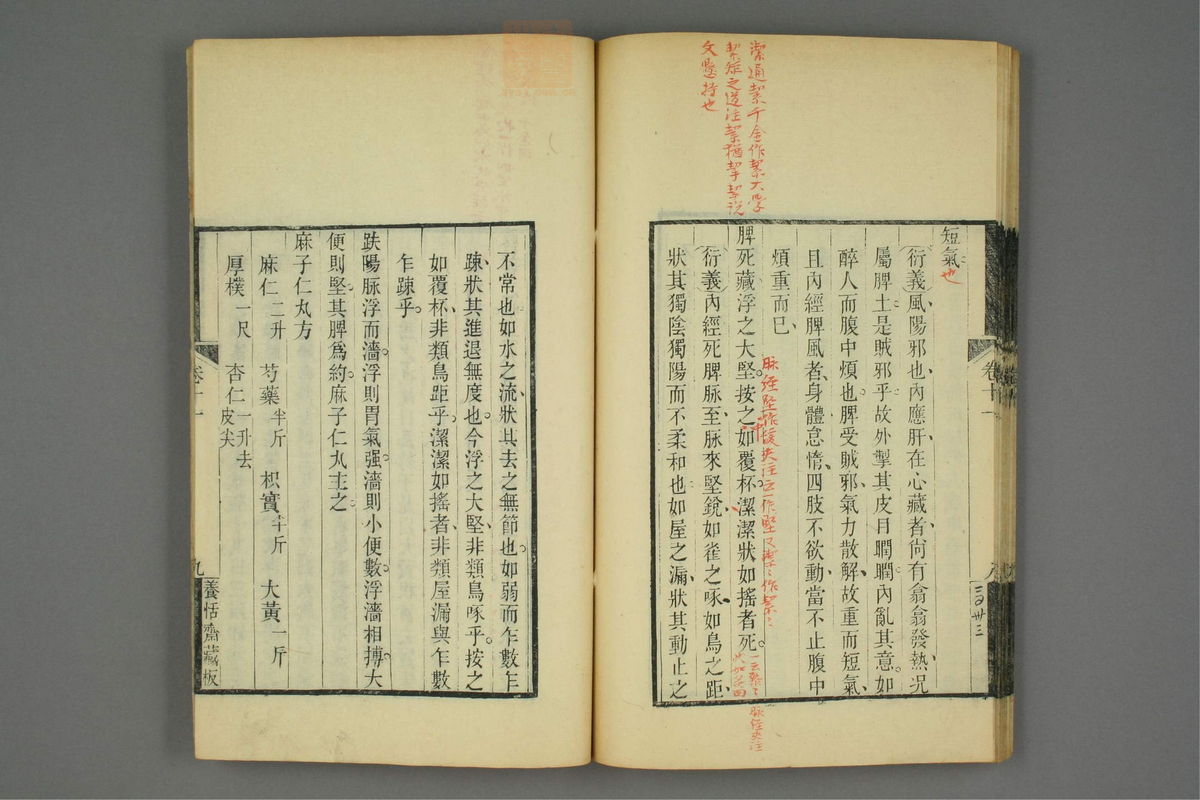 潔通絜千金作絜大學
絜矩之道注絜猶挈挈說
文懸持也
短氣也
衍義風陽邪也內應肝在心藏者尙有翕翕發熱況
屬脾土是賊邪乎故外掣其皮目瞤瞤內亂其意如
醉人而腹中煩也脾受賊邪氣力散解故重而短氣
且內經脾風者身體怠惰四肢不欲動當不止腹中
煩重而已
脾死藏浮之大堅按之如覆杯潔潔狀如搖者死
脉經堅作緩夾注云一作堅又潔潔作絜絜
中
衍義內經死脾脈至脈來堅銳如雀之啄如鳥之距
狀其獨陰獨陽而不柔和也如屋之漏狀其動止之
卷十一
九
不常也如水之流狀其去之無節也如弱而乍數乍
踈狀其進退無度也今浮之大堅非類鳥啄乎按之
如覆杯非類鳥距乎潔潔如搖者非類屋漏與乍數
乍踈乎
趺陽脈浮而濇浮則胃氣强濇則小便數浮濇相搏大
便則堅其脾爲約麻子仁丸主之
麻子仁丸方
麻仁二升 芍藥半斤 枳實半斤 大黃一斤
厚樸一尺 杏仁一升去皮尖
卷十一
九
養恬齋藏板